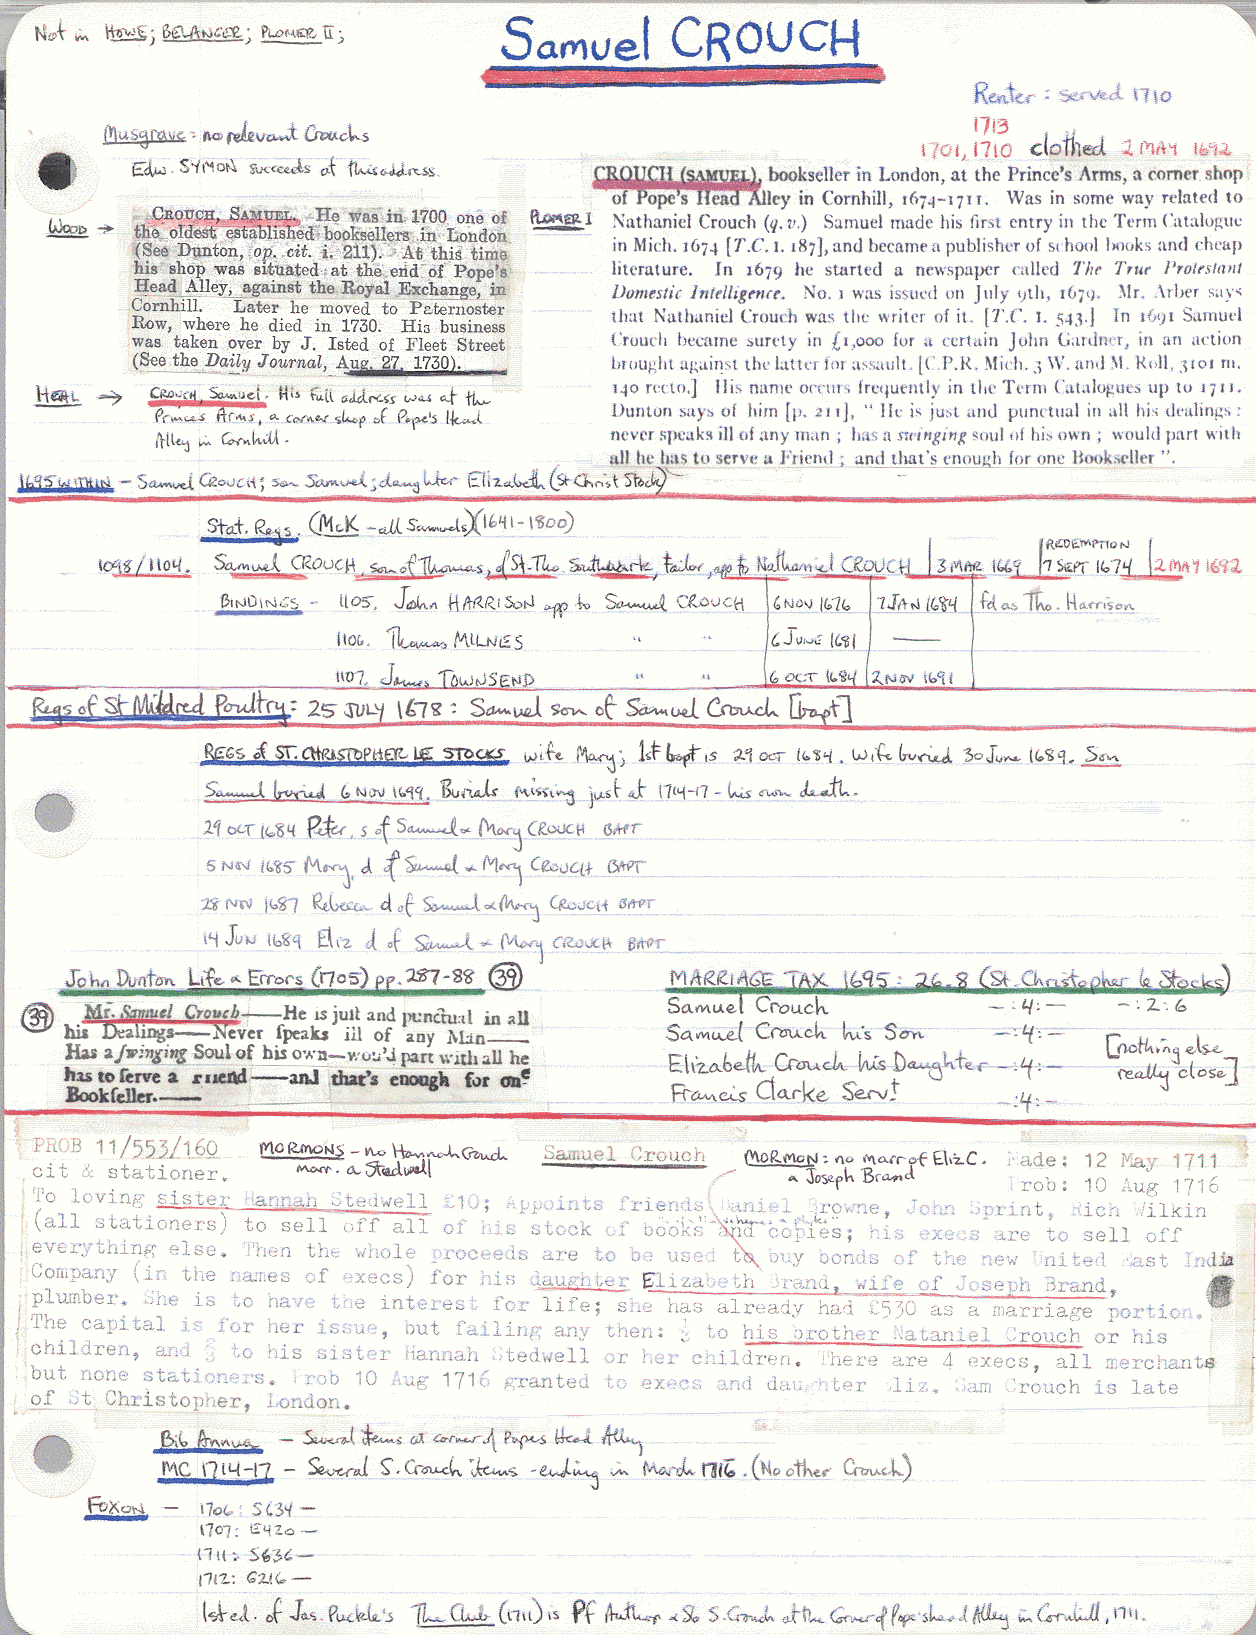 Not in HOWE; BELANGER; PLOMER II;
Samuel CROUCH
Renter: served 1710
1713
1701, 1710 clothed 2 MAY 1692
Musgrave: no relevant Crouchs
Edw. SYMON succeeds at this address.
WOOD →
CROUCH, SAMUEL. He was in 1700 one of
the oldest established booksellers in London
(See Dunton, op. cit. i. 211). At this time
his shop was situated at the end of Pope's
Head Alley, against the Royal Exchange, in
Cornhill. Later he moved to Paternoster
Row, where he died in 1730. His business
was taken over by J. Isted of Fleet Street
(See the Daily Journal, Aug. 27, 1730).
PLOMER I
CROUCH (SAMUEL), bookseller in London, at the Prince's Arms, a corner shop
of Pope's Head Alley in Cornhill, 1674-1711. Was in some way related to
Nathaniel Crouch (q.v.) Samuel made his first entry in the Term Catalogue
in Mich. 1674 [T.C. I. 187], and became a publisher of school books and cheap
literature. In 1679 he started a newspaper called The True Protestant
Domestic Intelligence. No. 1 was issued on July 9th, 1679. Mr. Arber says
that Nathaniel Crouch was the writer of it. [T.C. I. 543.] In 1691 Samuel
Crouch became surety in £1,000 for a certain John Gardner, in an action
brought against the latter for assault. [C.P.R. Mich. 3 W. and M. Roll, 3101 m.
140 recto.] His name occurs frequently in the Term Catalogues up to 1711.
Dunton says of him [p. 211], "He is just and punctual in all his dealings:
never speaks ill of any man; has a swinging soul of his own; would part with
all he has to serve a Friend; and that's enough for one Bookseller".
HEAL → CROUCH, Samuel. His full address was at the
Princes Arms, a corner shop of Pope's Head
Alley in Cornhill.
1695 WITHIN - Samuel CROUCH; son Samuel; daughter Elizabeth (St Christ Stock)
Stat. Regs. (McK - all Samuels)(1641-1800)
1098/1104. Samuel CROUCH, son of Thomas, of St. Tho. Southwark, tailor, app to Nathaniel CROUCH | 3 MAR 1669 | REDEMPTION 7 SEPT 1674 | 2 MAY 1692
BINDINGS - 1105. John HARRISON app to Samuel CROUCH | 6 NOV 1676 | 7 JAN 1684 | fd as Tho. Harrison
1106. Thomas MILNES " " | 6 JUNE 1681 | —
1107. James TOWNSEND " " | 6 OCT 1684 | 2 NOV 1691
Regs of St Mildred Poultry: 25 JULY 1678: Samuel son of Samuel Crouch [bapt]
REGS of ST. CHRISTOPHER LE STOCKS wife Mary; 1st bapt is 29 OCT 1684. Wife buried 30 June 1689. Son
Samuel buried 6 NOV 1699. Burials missing just at 1714-17 - his own death.
29 OCT 1684 Peter, s of Samuel & Mary CROUCH BAPT
5 NOV 1685 Mary, d of Samuel & Mary CROUCH BAPT
28 NOV 1687 Rebecca d of Samuel & Mary CROUCH BAPT
14 JUN 1689 Eliz d of Samuel & Mary CROUCH BAPT
John Dunton Life & Errors (1705) pp. 287-88 (39)
(39) Mr. Samuel Crouch——He is just and punctual in all
his Dealings——Never speaks ill of any Man——
Has a swinging Soul of his own—wou'd part with all he
has to serve a Friend——and that's enough for one
Bookseller.——
MARRIAGE TAX 1695: 26.8 (St. Christopher le Stocks)
Samuel Crouch -:4:- -:2:6
Samuel Crouch his Son -:4:-
Elizabeth Crouch his Daughter -:4:-
Francis Clarke Servt -:4:-
[nothing else
really close]
PROB 11/553/160
MORMONS - no Hannah Crouch
marr. a Stedwell
Samuel Crouch
MORMON: no marr of Eliz C.
a Joseph Brand
Made: 12 May 1711
Prob: 10 Aug 1716
cit & stationer.
To loving sister Hannah Stedwell £10; Appoints friends Daniel Browne, John Sprint, Rich Wilkin
(all stationers) to sell off all of his stock of books and copies; his execs are to sell off
everything else. Then the whole proceeds are to be used to buy bonds of the new United East India
Company (in the names of execs) for his daughter Elizabeth Brand, wife of Joseph Brand,
plumber. She is to have the interest for life; she has already had £530 as a marriage portion.
The capital is for her issue, but failing any then: to his brother Nataniel Crouch or his
children, and to his sister Hannah Stedwell or her children. There are 4 execs, all merchants
but none stationers. Prob 10 Aug 1716 granted to execs and daughter Eliz. Sam Crouch is late
of St Christopher, London.
Bib Annua - Several items at corner of Popes Head Alley
MC 1714-17 - Several S. Crouch items - ending in March 1716. (No other Crouch)
FOXON - 1706: S634 -
1707: E420 -
1711: S636 -
1712: G216 -
1st ed. of Jas. Puckle's The Club (1711) is Pf Author & So S. Crouch at the Corner of Popeshead Alley in Cornhill, 1711.